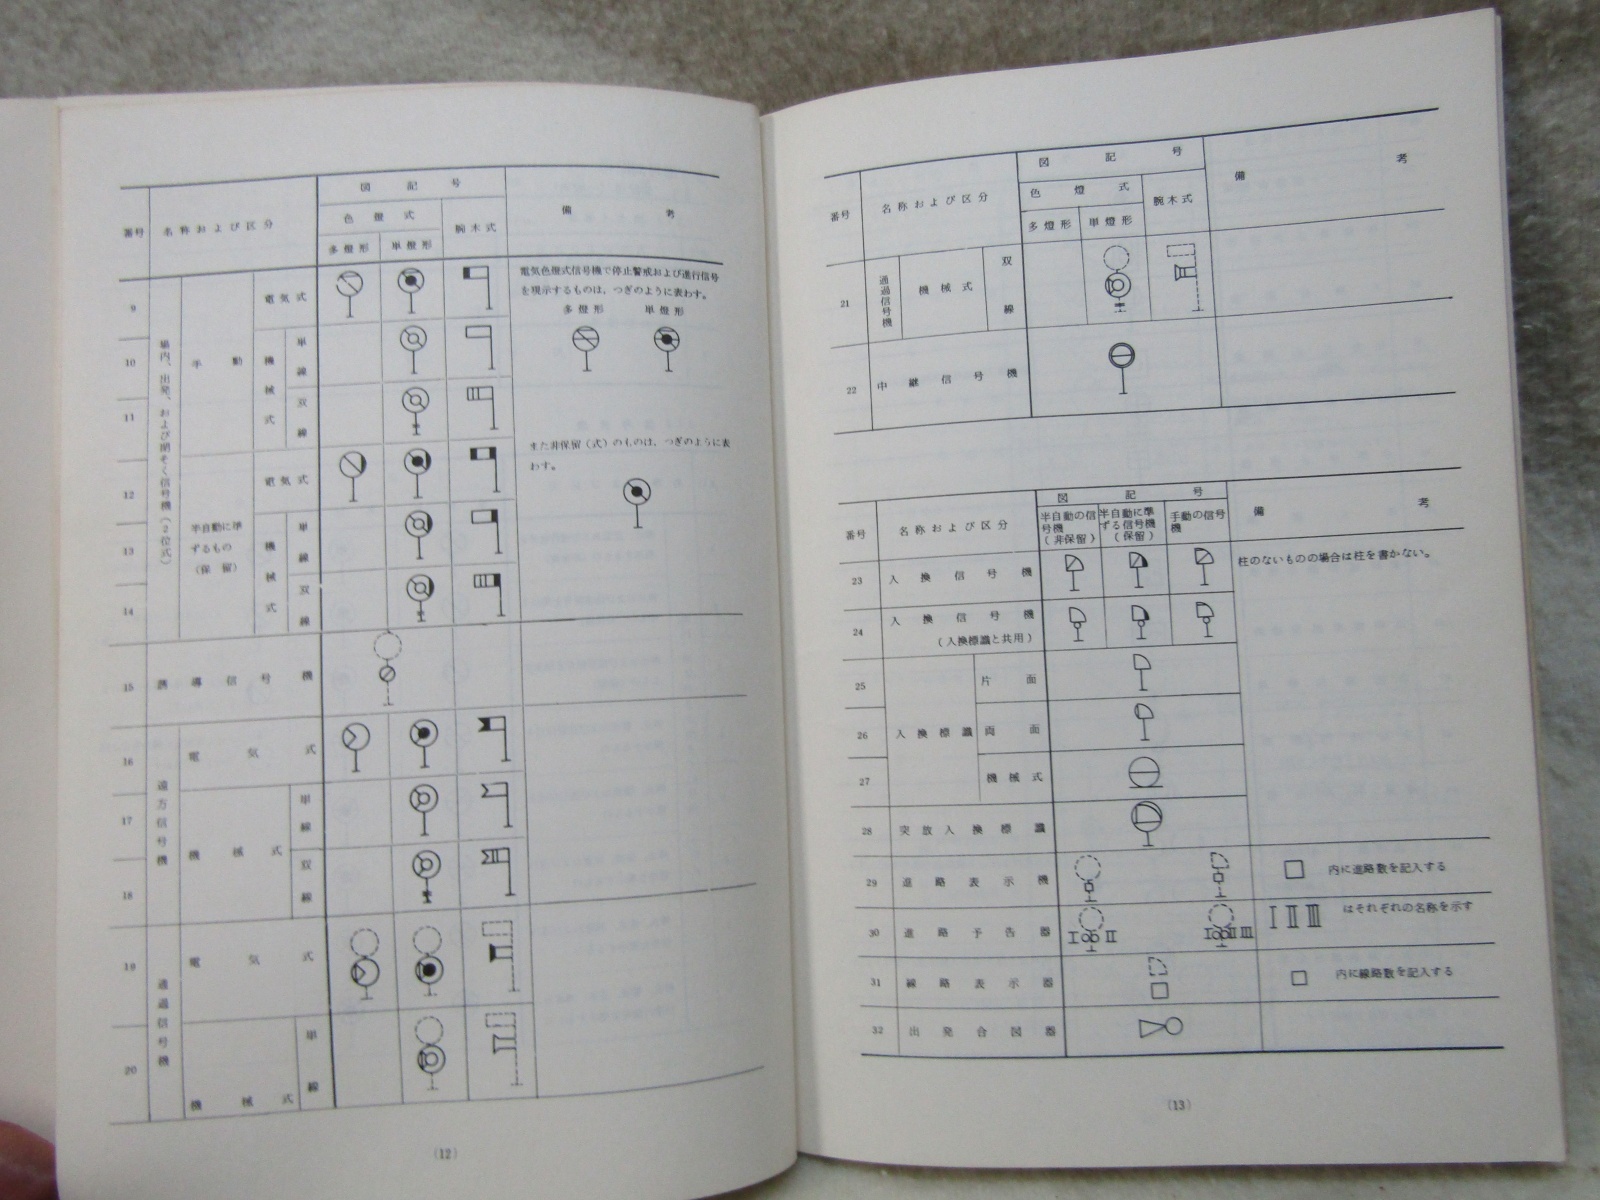 図 記 号
色 燈 式
腕木式
備 考
番号
名称および区分
多燈形
単燈形
9
10
11
12
13
14
15
16
17
18
19
20
場内、出発、および閉そく信号機(2位式)
手 動
電気式
機械式
単 線
双 線
半自動に準
ずるもの
(保 留)
電気式
機械式
単 線
双 線
電気色燈式信号機で停止警戒および進行信号
を現示するものは、つぎのように表わす。
多燈形 単燈形
また非保留(式)のものは、つぎのように表
わす。
誘導信号機
遠方信号機
電気式
機械式
単 線
双 線
通過信号機
電気式
機械式
単 線
(12)
図 記 号
色 燈 式
腕木式
備 考
番号
名称および区分
多燈形
単燈形
21
通過信号機
機械式
双 線
22
中継信号機
番号
名称および区分
図 記 号
半自動の信
号機
(非保留)
半自動に準
ずる信号機
(保留)
手動の信号
機
備 考
23
入換信号機
柱のないものの場合は柱を書かない。
24
入換信号機
(入換標識と共用)
25
片 面
26
入換標識
両 面
27
機械式
28
突放入換標識
29
進路表示機
内に進路数を記入する
30
進路予告器
Ⅰ Ⅱ
Ⅰ Ⅱ Ⅲ
Ⅰ Ⅱ Ⅲ はそれぞれの名称を示す
31
線路表示器
内に線路数を記入する
32
出発合図器
(13)